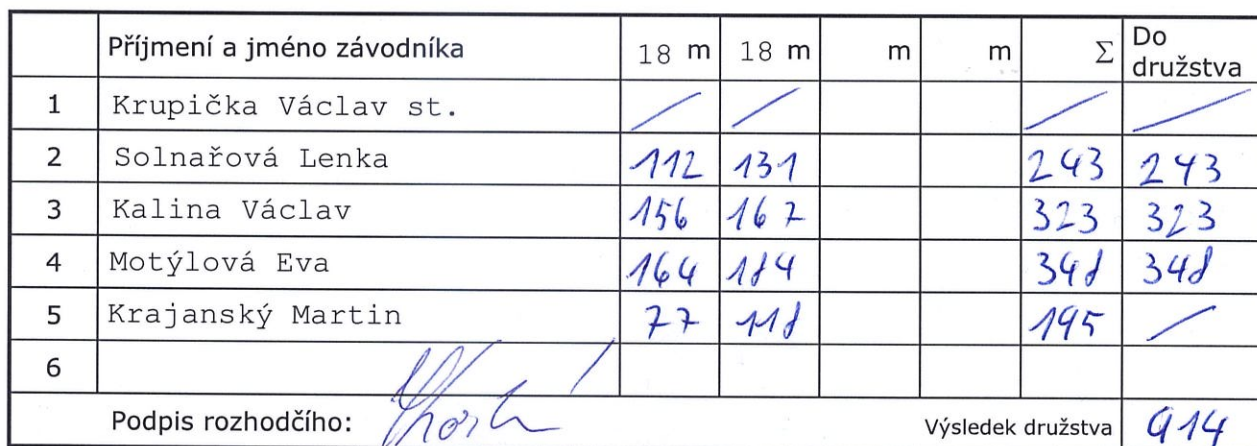 Příjmení a jméno závodníka 18 m 18 m m m Σ Do družstva
1 Krupička Václav st. / / / /
2 Solnařová Lenka 112 131 243 243
3 Kalina Václav 156 167 323 323
4 Motýlová Eva 164 184 348 348
5 Krajanský Martin 77 118 195 /
6
Podpis rozhodčího: Výsledek družstva 914